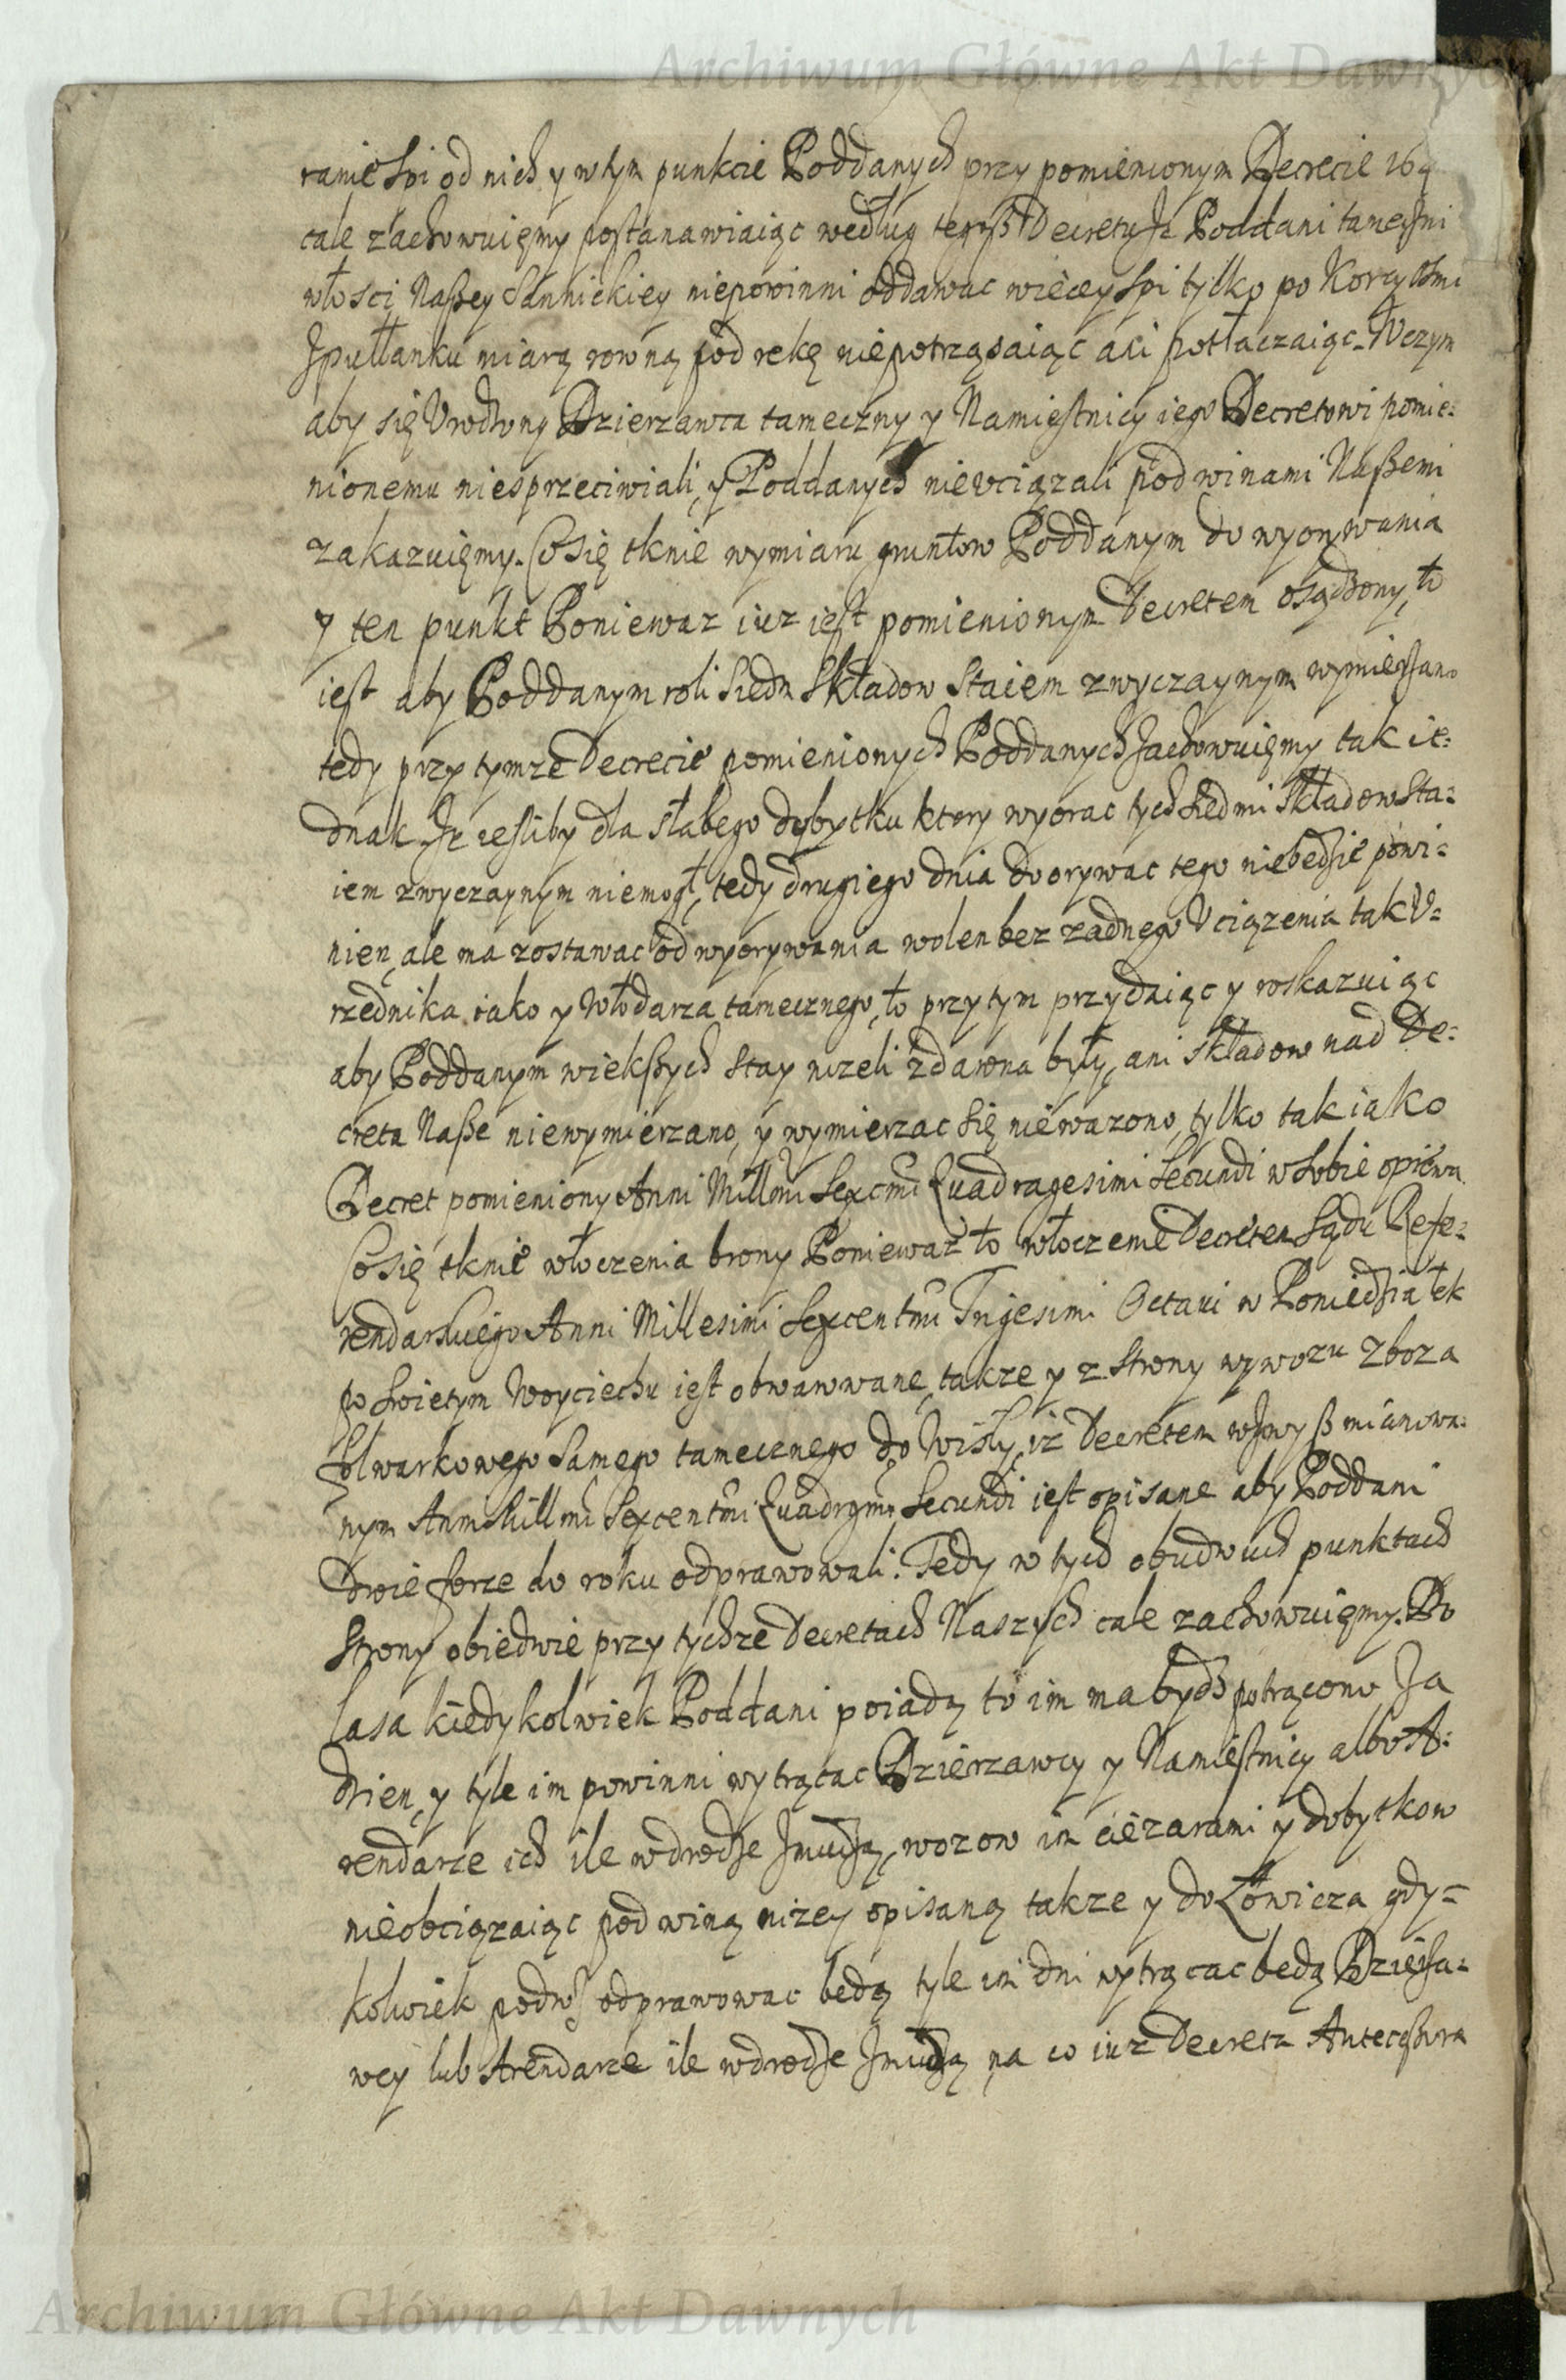 Archiwum Główne Akt Dawnych
ranie Spi od nich y wtym punkcie Poddanych przy pomienionym Decrecie 164
cale zachowuięmy postanawiaiąc według tegoß Decretu Iz Poddani tameczni
włosci Naßey Sannickiey niepowinni oddawac więcey Spi tylko po Korcy osmi
Zpułłanku miarą rowną pod rekę niepotrząsaiąc ani potłaczaiąc. Wczym
aby się Vrodzony Dzierzawca tameczny y Namiestnicy iego Decretowi pomie:
nionemu niesprzeciwiali, y Poddanych nieuciązali pod winami Naßemi
zakazuięmy. Co się tknie wymiaru gruntow Poddanym do wyorywania
y ten punkt Poniewaz iuz iest pomienionym Decretem osądzony, to
iest aby Poddanym roli siedm Składow Staiem zwyczaynym wymierzano
tedy przy tymze Decrecie pomienionych Poddanych Zachowuięmy tak ie:
dnak Iz iesliby dla słabego dobytku ktory wyorac tych siedmi Składow Sta:
iem zwyczaynym niemogł, tedy drugiego dnia doorywac tego niebędzie powi:
nien, ale ma zostawac od wyorywania wolen bez zadnego Vciązenia tak V:
rzednika iako y Włodarza tamecznego, to przy tym przydaiąc y roskazuiąc
aby Poddanym wiekßych Stay nizeli zdawna były, ani składow nad De:
creta Naße niewymierzano, y wymierzac się niewazono, tylko tak iako
Decret pomieniony Anni Millmi Sexcmi Quadragesimi Secundi w sobie opiewa
Co się tknie włoczenia brony Poniewaz to włoczenie Decretem Sądu Refe:
rendarskiego Anni Millesimi Sexcentmi Trigesimi Octaui w Poniedziałek
po Swietym Woyciechu iest obwarowane, takze y z strony wywozu zboza
folwarkowego Samego tamecznego do Wisły, iz Decretem wzwyß mianowa:
nym Anni Millmi Sexcentmi Quadrgmi Secundi iest opisane aby Poddani
Dwie forze do roku odprawowali. Tedy w tych obudwuch punktach
Strony obiedwie przy tychze Decretach Naszych cale zachowuięmy. Do
Lasa kiedykolwiek Poddani poiadą to im ma bydz potrącono Za
dzien, y tyle im powinni wytrącac Dzierzawcy y Namiestnicy albo A:
rendarze ich ile wdrodze Zmudzą, wozow im ciezarami y dobytkow
nieobciązaiąc pod winą nizey opisaną takze y do Łowicza gdy=
kolwiek odprawowac będą tyle im dni wytrącac będą Dzierza:
wcy lub Arendarze ile wdrodze Zmudzą na co iuz Decreta Antecessora
Archiwum Główne Akt Dawnych